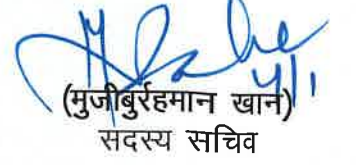 4/1
(मुजीबुर्रहमान खान)
सदस्य सचिव